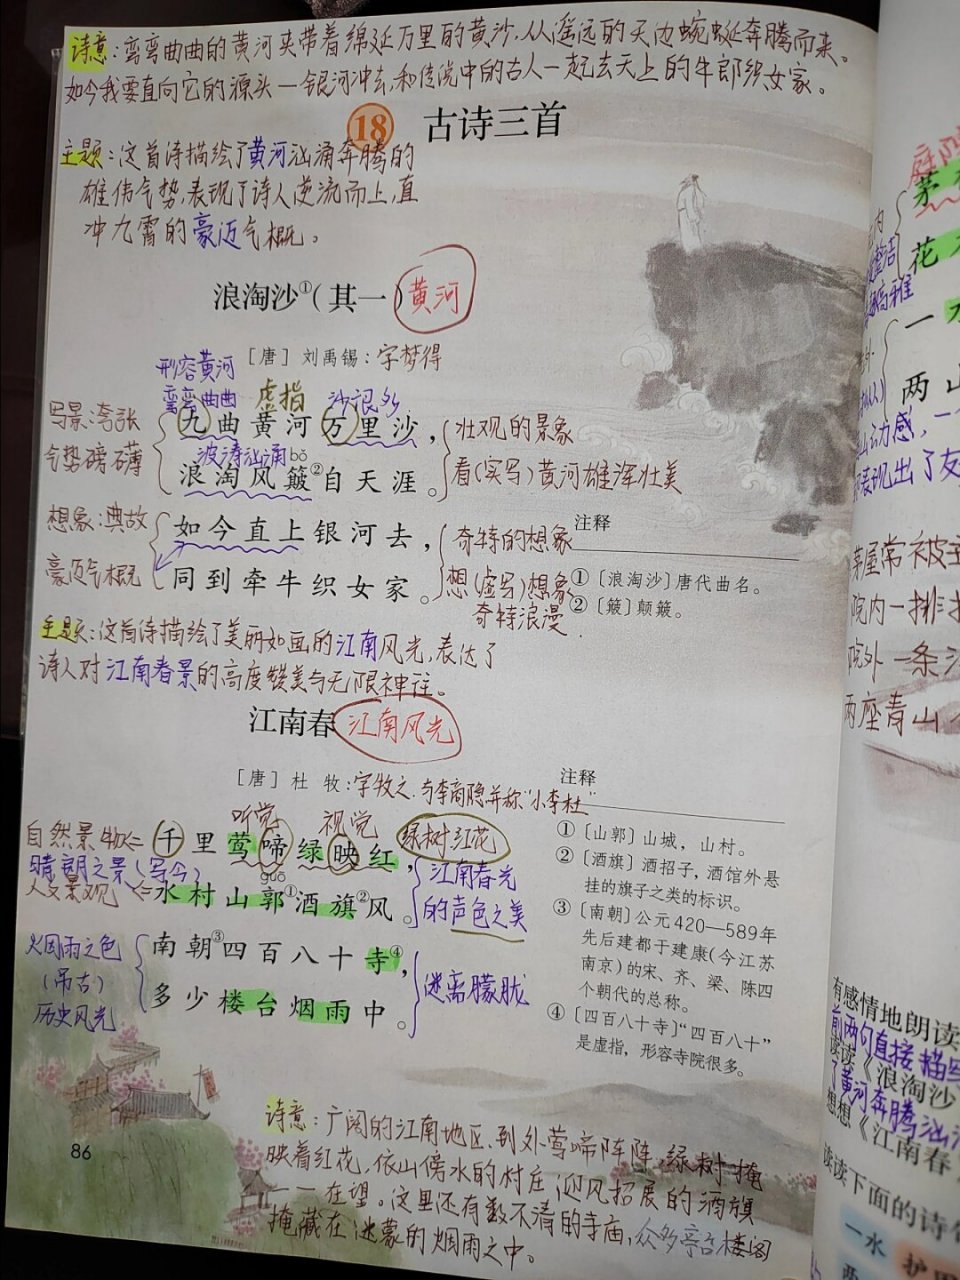 诗意：弯弯曲曲的黄河夹带着绵延万里的黄沙，从遥远的天边蜿蜒奔腾而来。
如今我要直向它的源头—银河冲去，和传说中的古人一起去天上的牛郎织女家。
18 古诗三首
主题：这首诗描绘了黄河汹涌奔腾的
雄伟气势，表现了诗人逆流而上，直
冲九霄的豪迈气概。
浪淘沙①（其一）黄河
［唐］刘禹锡：字梦得
形容黄河
弯弯曲曲 虚指 沙很多
写景：夸张
气势磅礴
九曲黄河万里沙，
波涛汹涌 bǒ
浪淘风簸②自天涯。
壮观的景象
看（实写）黄河雄浑壮美
想象：典故
豪迈气概
如今直上银河去，
同到牵牛织女家。
奇特的想象
想（虚写）想象
奇特浪漫
注释
①〔浪淘沙〕唐代曲名。
②〔簸〕颠簸。
主题：这首诗描绘了美丽如画的江南风光，表达了
诗人对江南春景的高度赞美与无限神往。
江南春 江南风光
［唐］杜 牧：字牧之，与李商隐并称“小李杜”
听觉 视觉 绿树红花
自然景物
晴朗之景（写今）
人文景观
千里莺啼绿映红，
guō
水村山郭①酒旗②风。
江南春光
的声色之美
烟雨之色
（吊古）
历史风光
南朝③四百八十寺④，
多少楼台烟雨中。
迷离朦胧
注释
①〔山郭〕山城，山村。
②〔酒旗〕酒招子，酒馆外悬
挂的旗子之类的标识。
③〔南朝〕公元420—589年
先后建都于建康（今江苏
南京）的宋、齐、梁、陈四
个朝代的总称。
④〔四百八十寺〕“四百八十”
是虚指，形容寺院很多。
诗意：广阔的江南地区，到处莺啼阵阵，绿树掩
映着红花，依山傍水的村庄，迎风招展的酒旗
一一在望。这里还有数不清的寺庙，众多亭台楼阁
掩藏在迷蒙的烟雨之中。
86
茅
花
一水
两山
动感，一
表现出了友
茅屋常被
院内一排排
院外一条
两座青山
有感情地朗读
前两句直接描写
读读《浪淘沙
了黄河奔腾汹
想想《江南春
读读下面的诗句
一水 护田
两